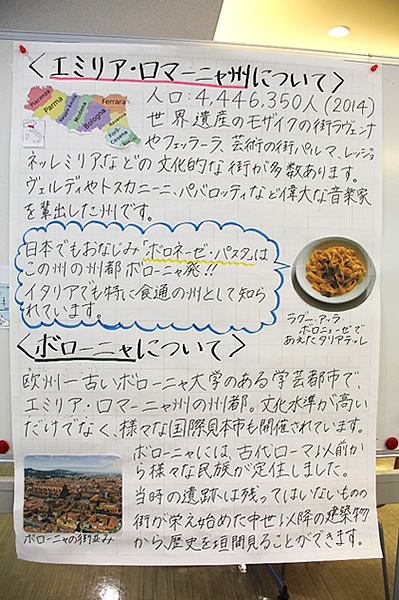 〈エミリア・ロマーニャ州について〉
Piacenza
Parma
Reggio Emilia
Modena
Bologna
Ferrara
Ravenna
Forlì-Cesena
Rimini
人口:4,446,350人(2014)
世界遺産のモザイクの街ラヴェンナ
やフェッラーラ、芸術の街パルマ、レッジョ
ネッレミリアなどの文化的な街が多数あります。
ヴェルディやトスカニーニ、パバロッティなど偉大な音楽家
を輩出した州です。
日本でもおなじみ「ボロネーゼ・パスタ」は
この州の州都ボローニャ発!!
イタリアでも特に食通の州として知ら
れています。
ラグー・アッラ・
ボロニェーゼで
あえたタリアテッレ
〈ボローニャについて〉
欧州一古いボローニャ大学のある学芸都市で、
エミリア・ロマーニャ州の州都。文化水準が高い
だけでなく、様々な国際見本市も開催されています。
ボローニャには、古代ローマ以前か
ら様々な民族が定住しました。
当時の遺跡は残ってはいないものの
街が栄え始めた中世以降の建築物
から、歴史を垣間見ることができます。
ボローニャの街並み